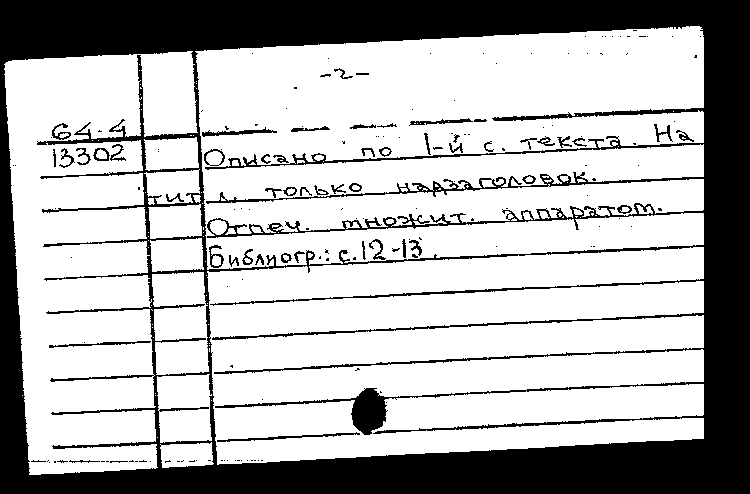 -2-
64-4
13302 Описано по 1-й с. текста. На
тит л. только надзаголовок.
Отпеч. множит. аппаратом.
Библиогр.: с.12-13.